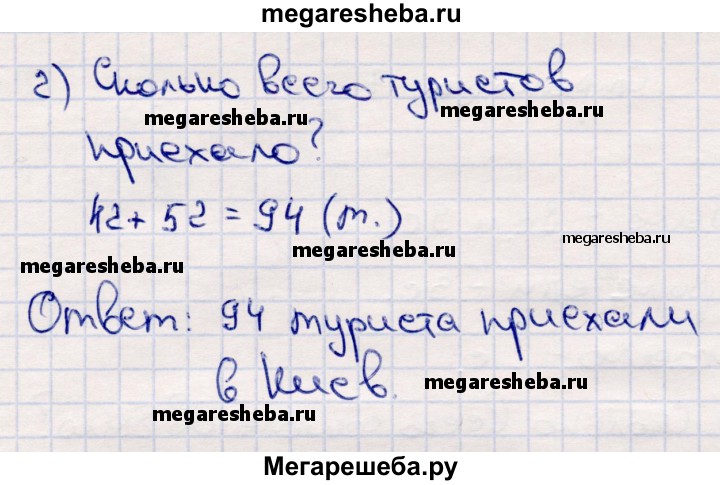 megaresheba.ru
2) Сколько всего туристов
megaresheba.ru
megaresheba.ru
приехало?
42 + 52 = 94 (т.)
megaresheba.ru
megaresheba.ru
megaresheba.ru
Ответ: 94 туриста приехали
в Киев.
megaresheba.ru
megaresheba.ru
Мегарешеба.ру